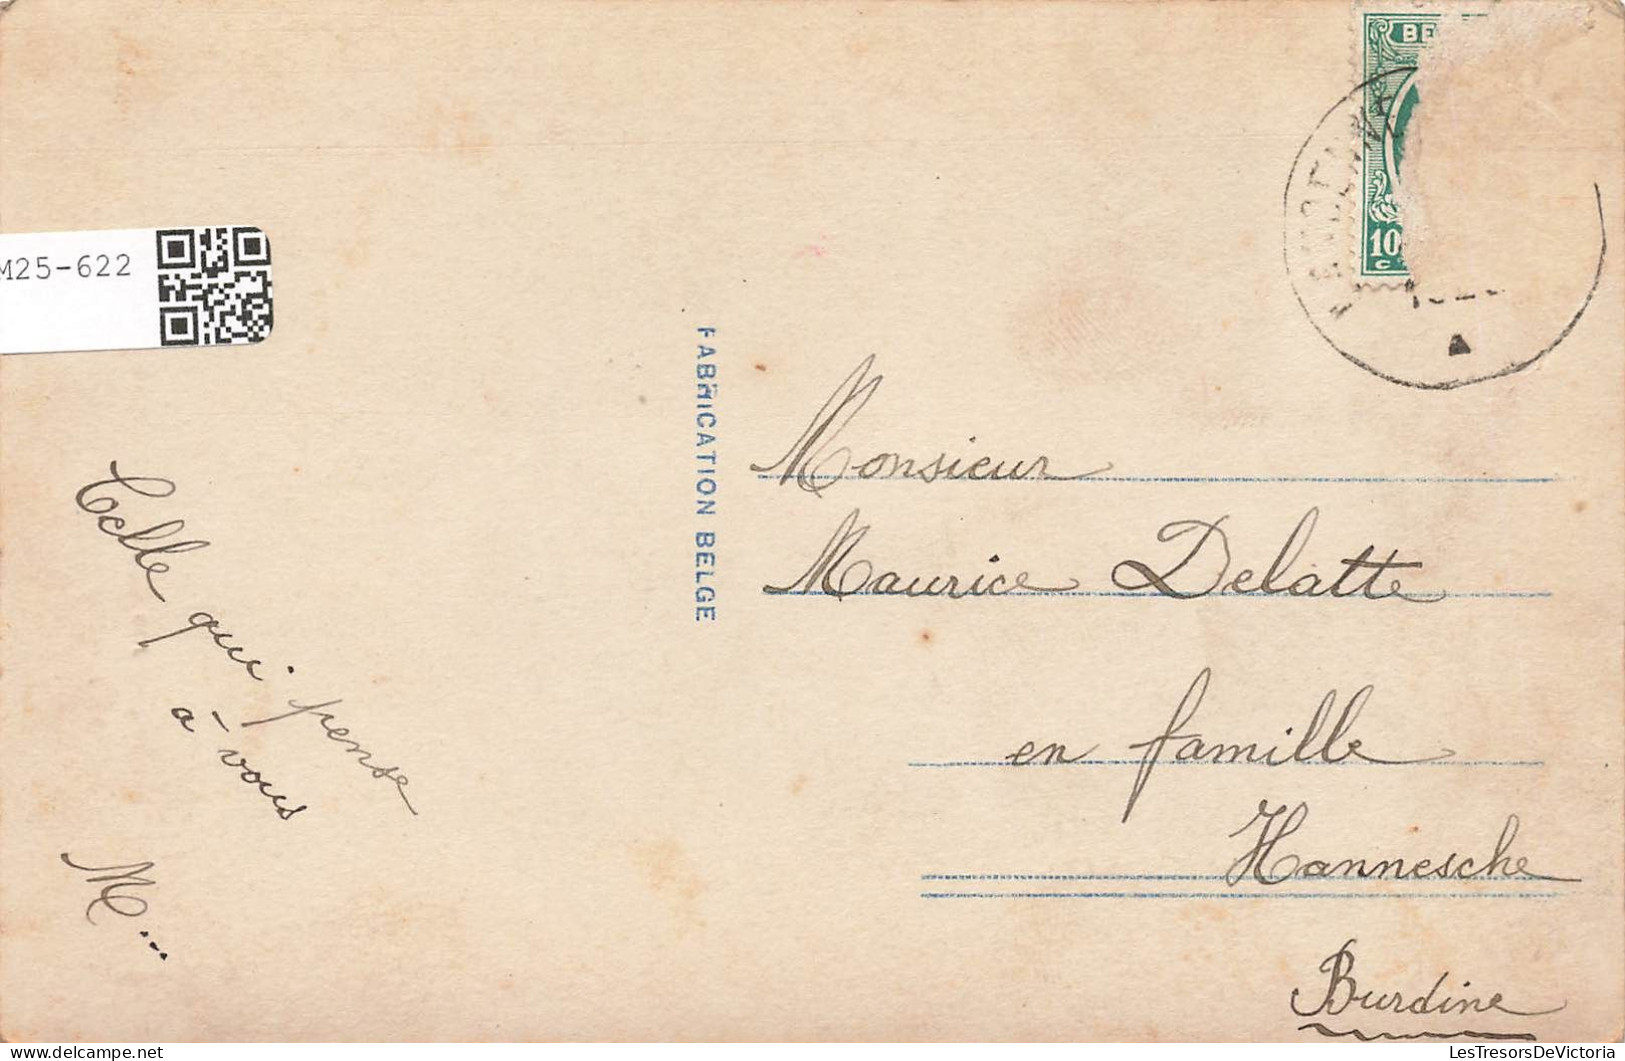 M25-622
BE
10
C
FABRICATION BELGE
Celle qui pense
à vous
M...
Monsieur
Maurice Delatte
en famille
Hannesche
Burdine
LesTresorsDeVictoria